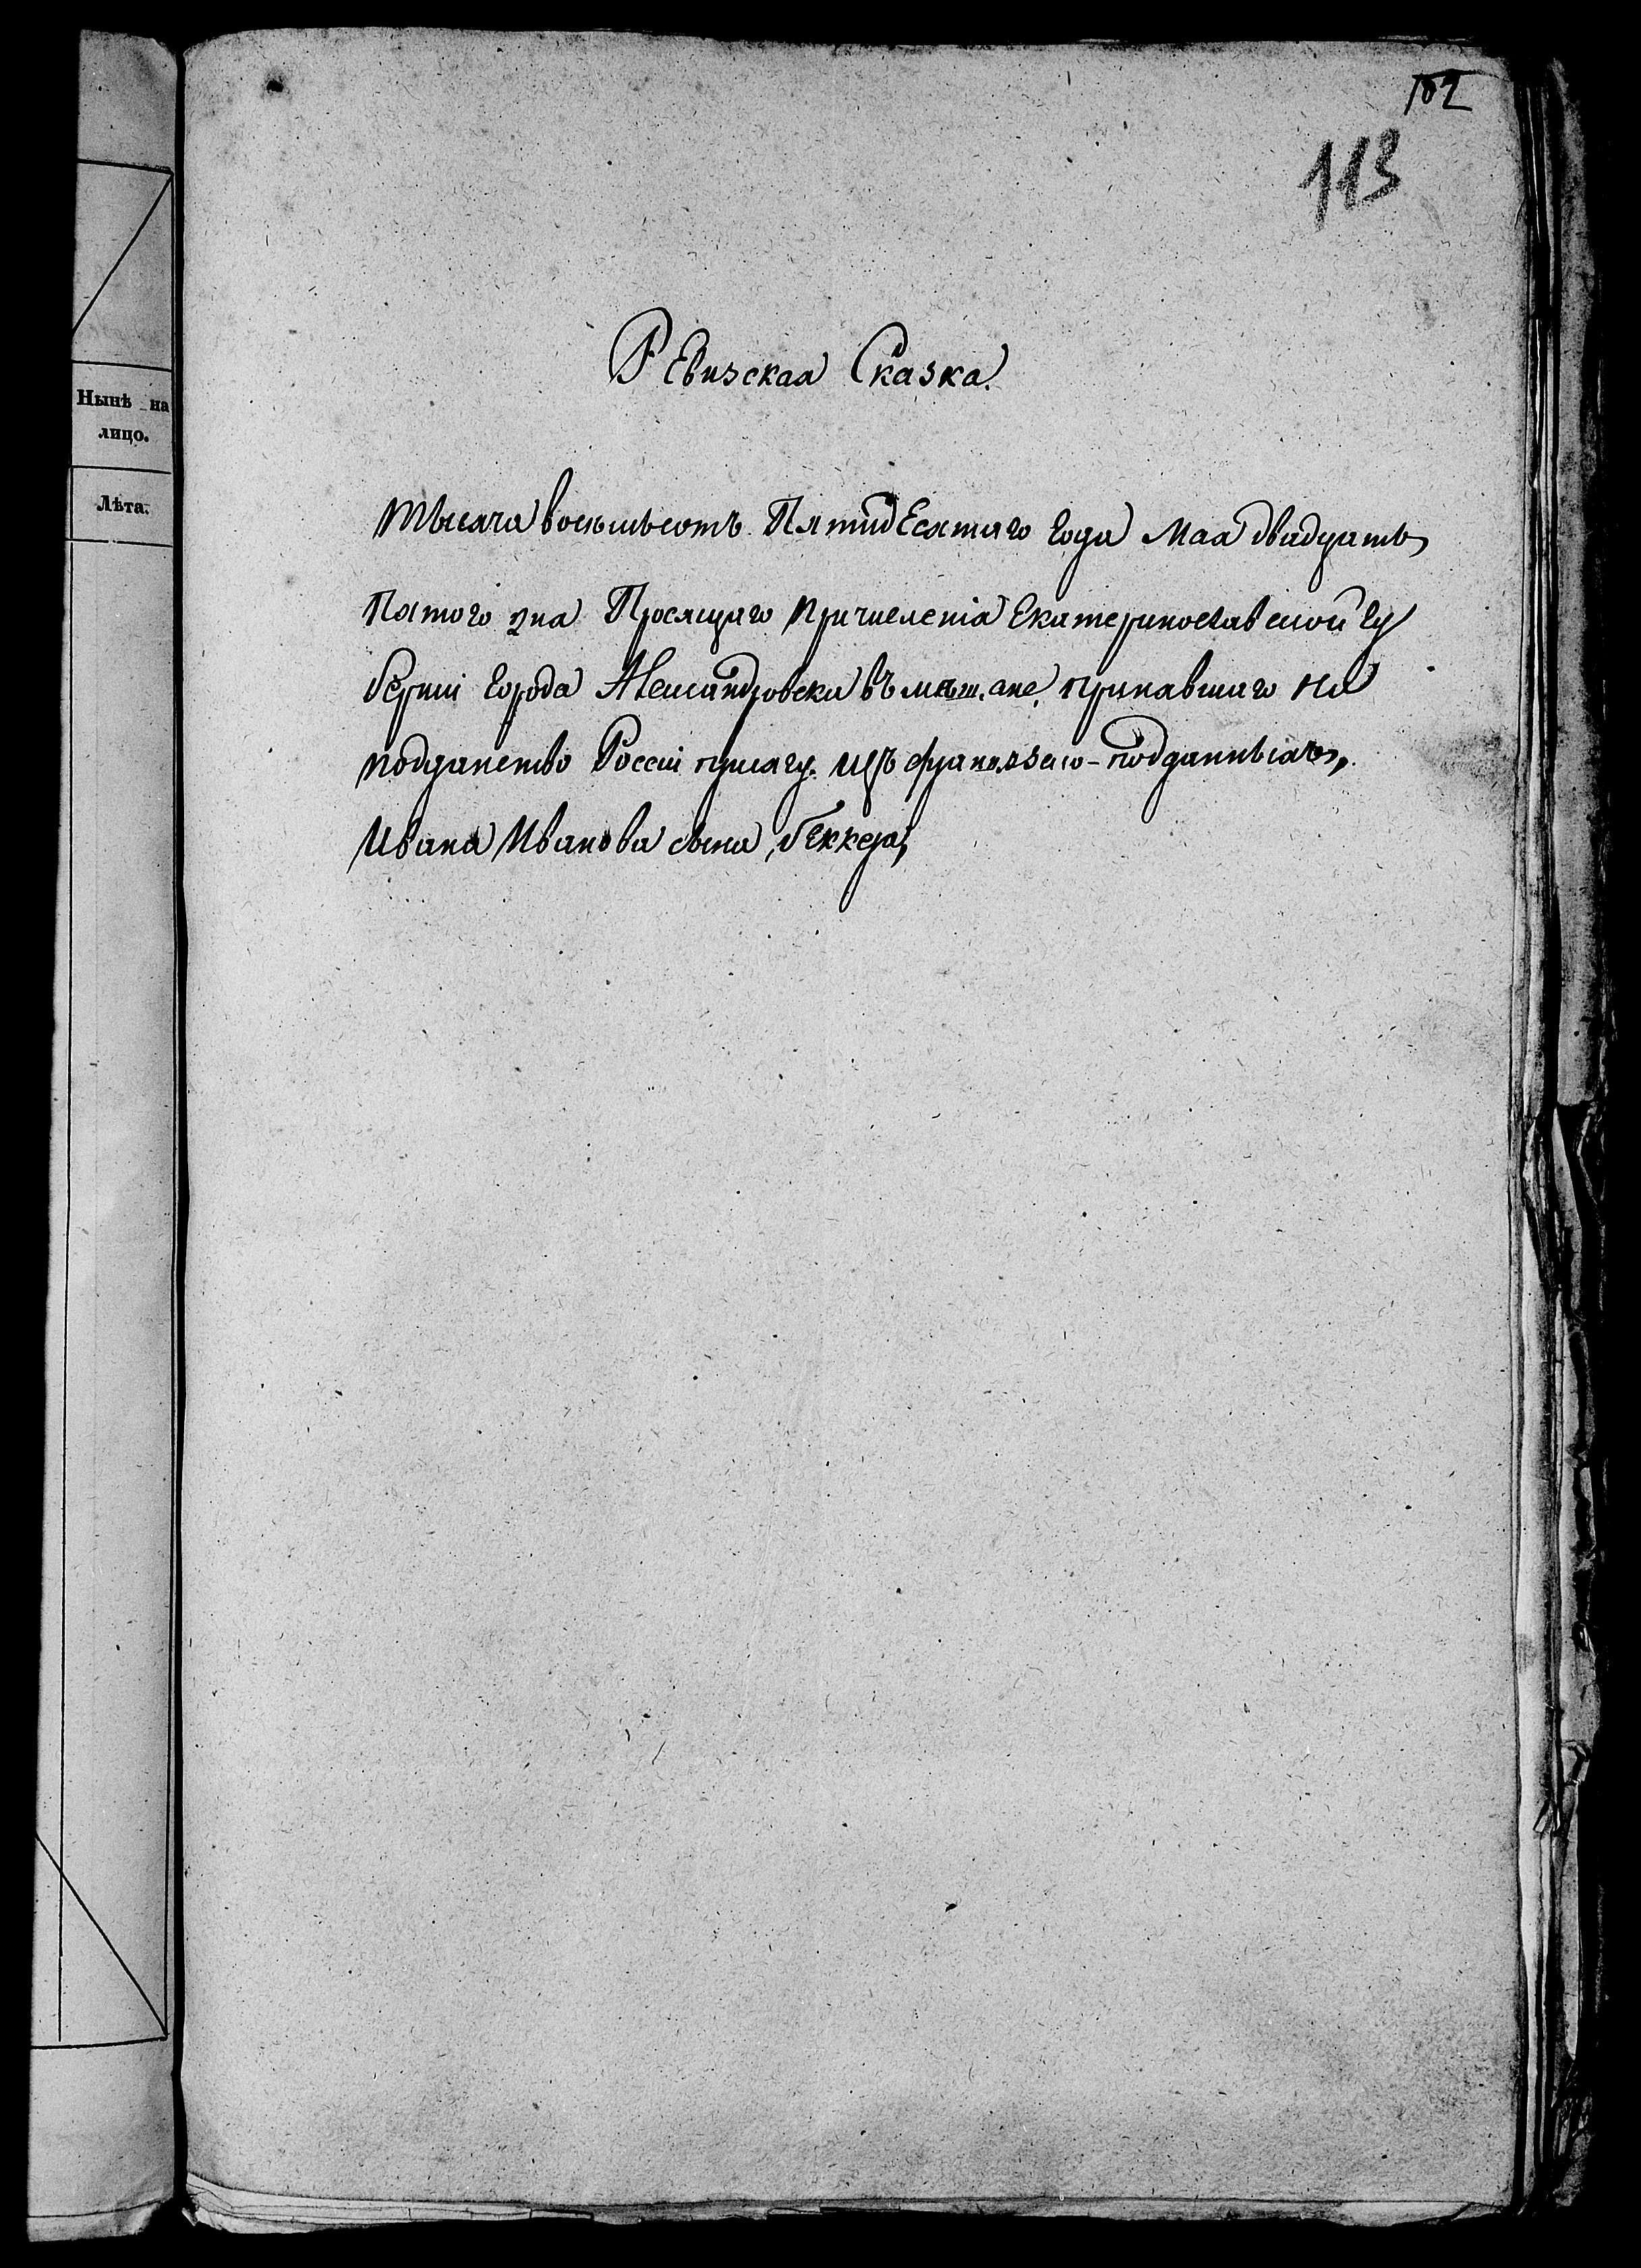 102
113
Нынѣ на
лицо.
Лѣта.
Ревизская Сказка.
Тысяча восемьсотъ Пятидесятаго Года Мая двадцать
Пятого дня Просящаго причисленія Екатеринославской Гу
берніи Города Александровска въ мѣщане, принявшаго на
подданство Россіи присягу. изъ французско-подданныхъ,
Ивана Иванова сына, Беккера,